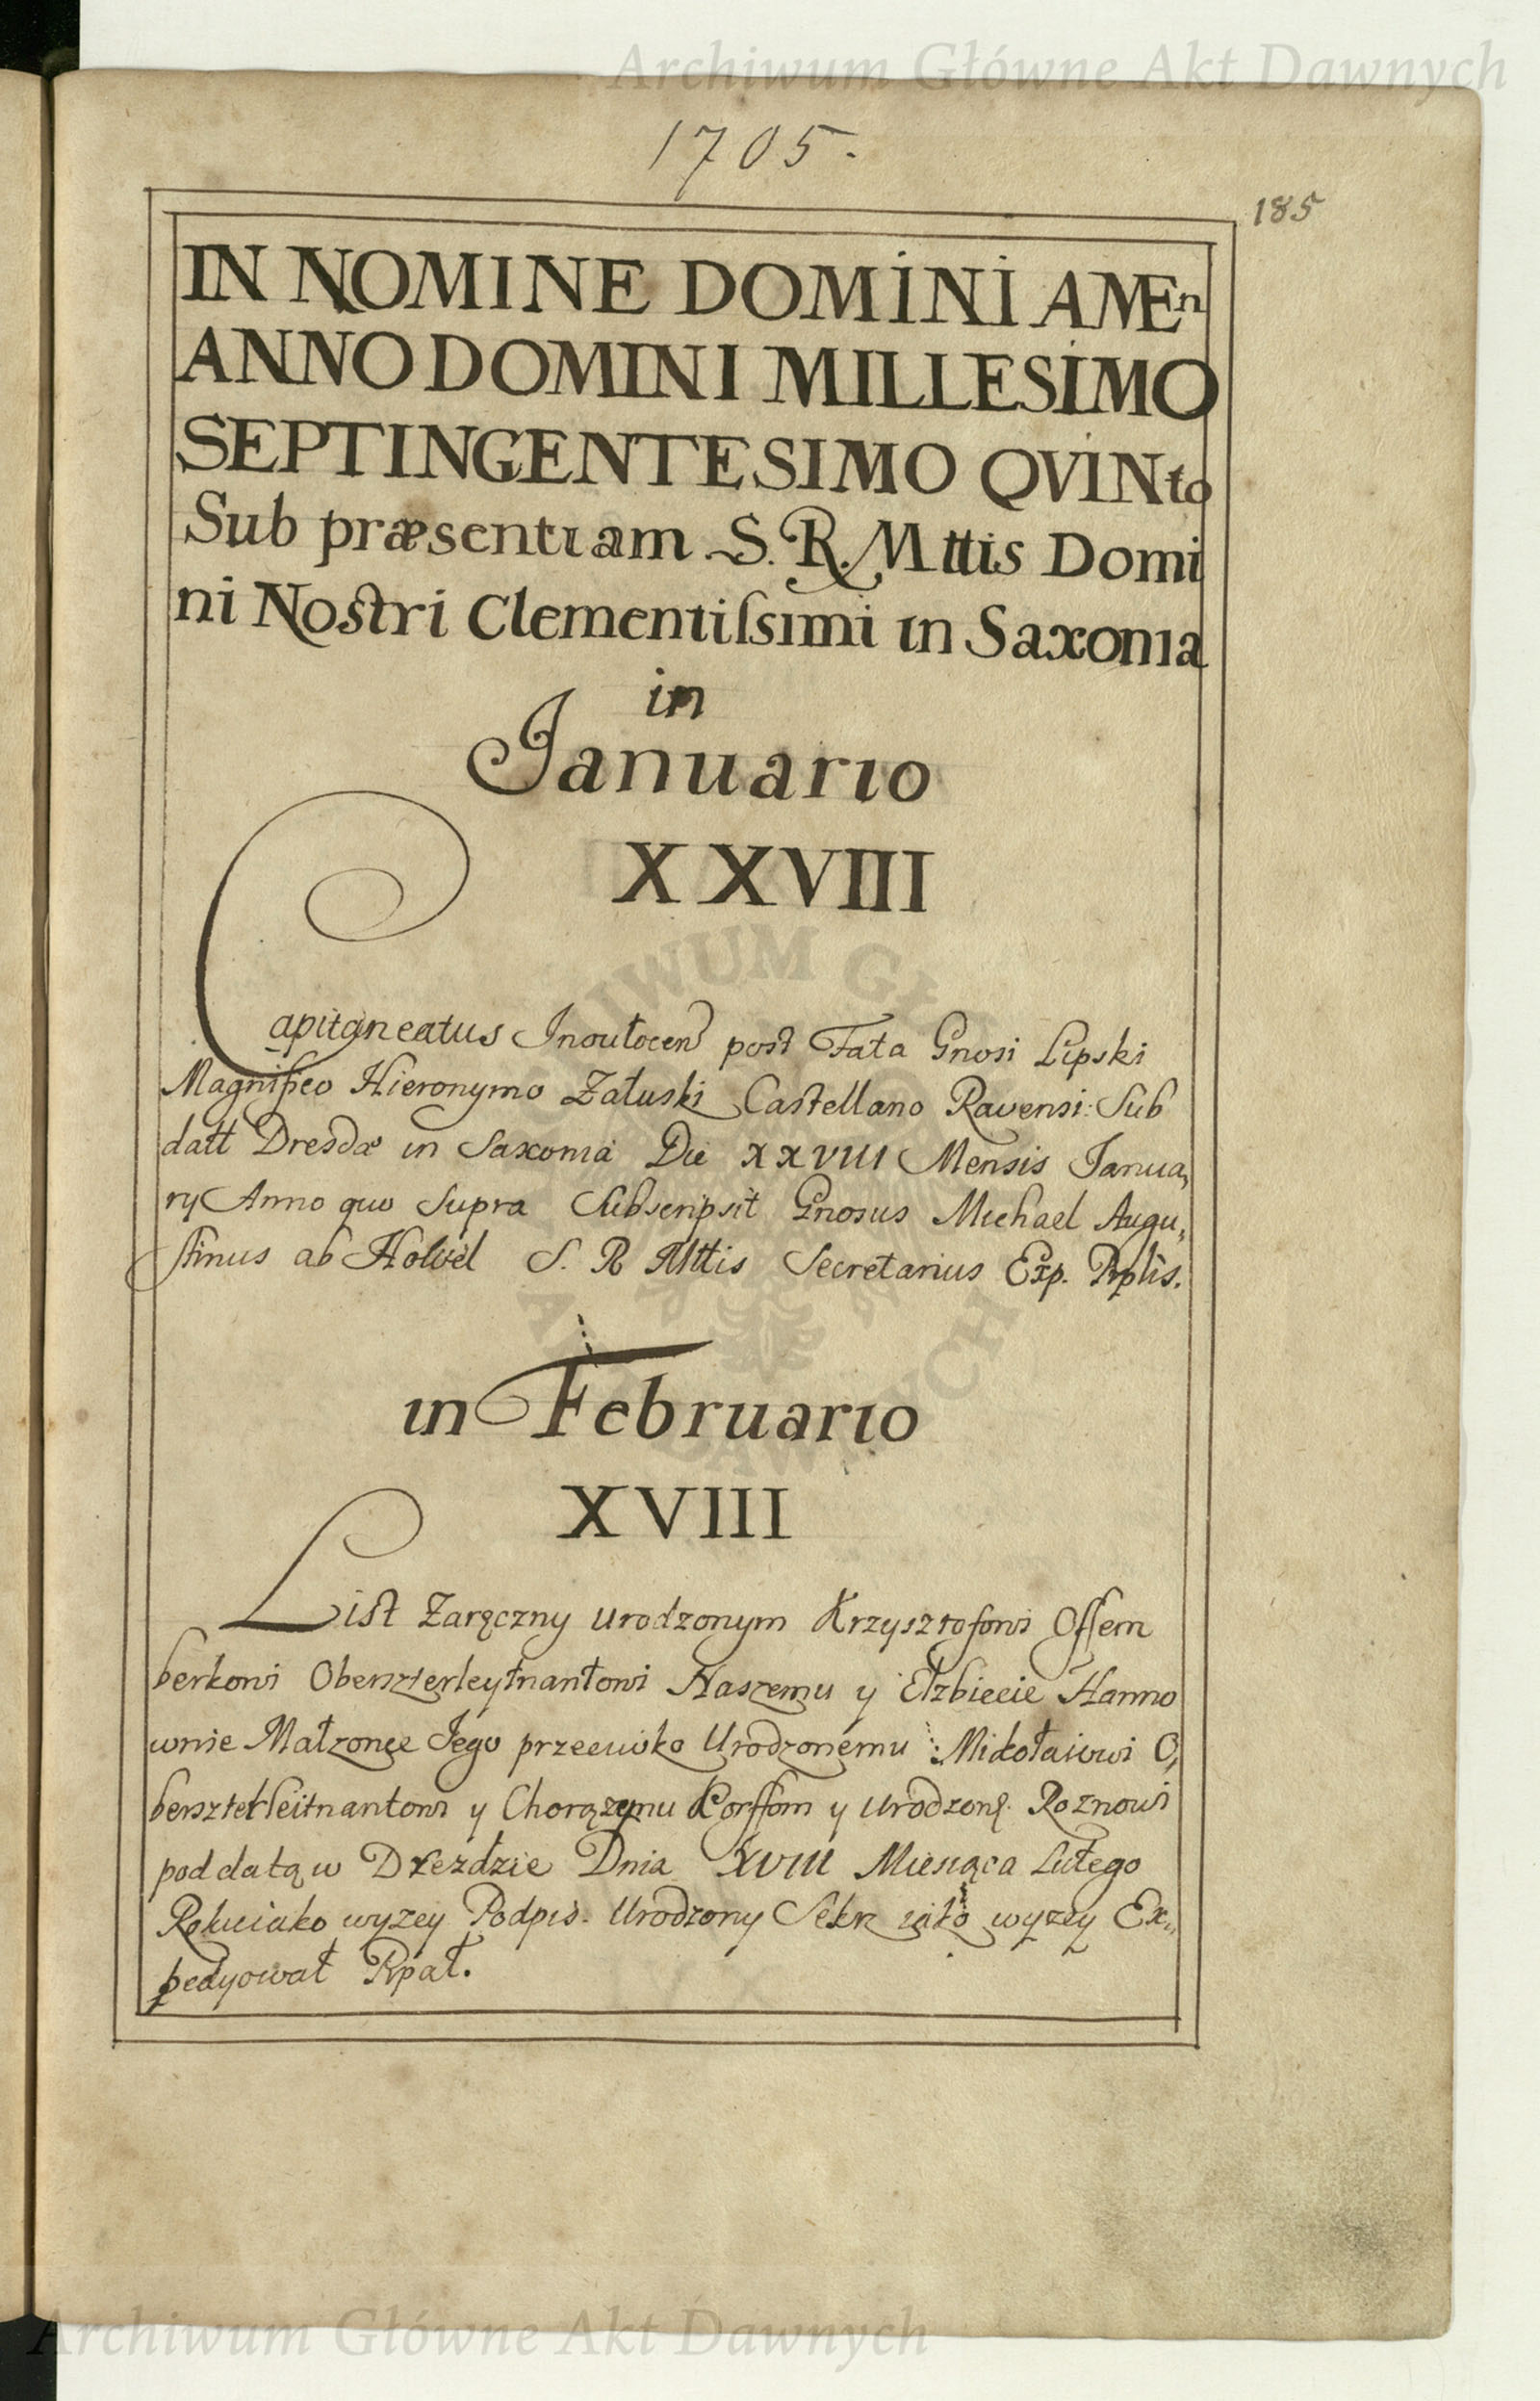 Archiwum Główne Akt Dawnych
1705.
185
IN NOMINE DOMINI AMEn
ANNO DOMINI MILLESIMO
SEPTINGENTESIMO QVINto
Sub præsentiam S. R. Mttis Domi
ni Nostri Clementiſsimi in Saxonia
in
Ianuario
XXVIII
Capitaneatus Inoułocen post Fata Gnosi Lipski
Magnifico Hieronymo Załuski Castellano Ravensi: Sub
datt Dresdæ in Saxonia Die XXVIII Mensis Janua,
rij Anno quo Supra Subscripsit Gnosus Michael Augu,
stinus ab Holvel S. R Mttis Secretarius Exp. Rplis.
in Februario
XVIII
List Zaręczny Urodzonym Krzysztofowi Oſſem
berkowi Oberszterleytnantowi Naszemu y Elzbiecie Hanno
wnie Małzonce Jego przeciwko Urodzonemu Mikołaiowi O,
berszterleitnantowi y Chorązemu Korffom y Urodzoną Roznowi
pod datą w Dreżdzie Dnia XVIII Miesiąca Lutego
Roku iako wyzey Podpis. Urodzony Sekr iako wyzey Ex,,
pedyował Rpał.
Archiwum Główne Akt Dawnych